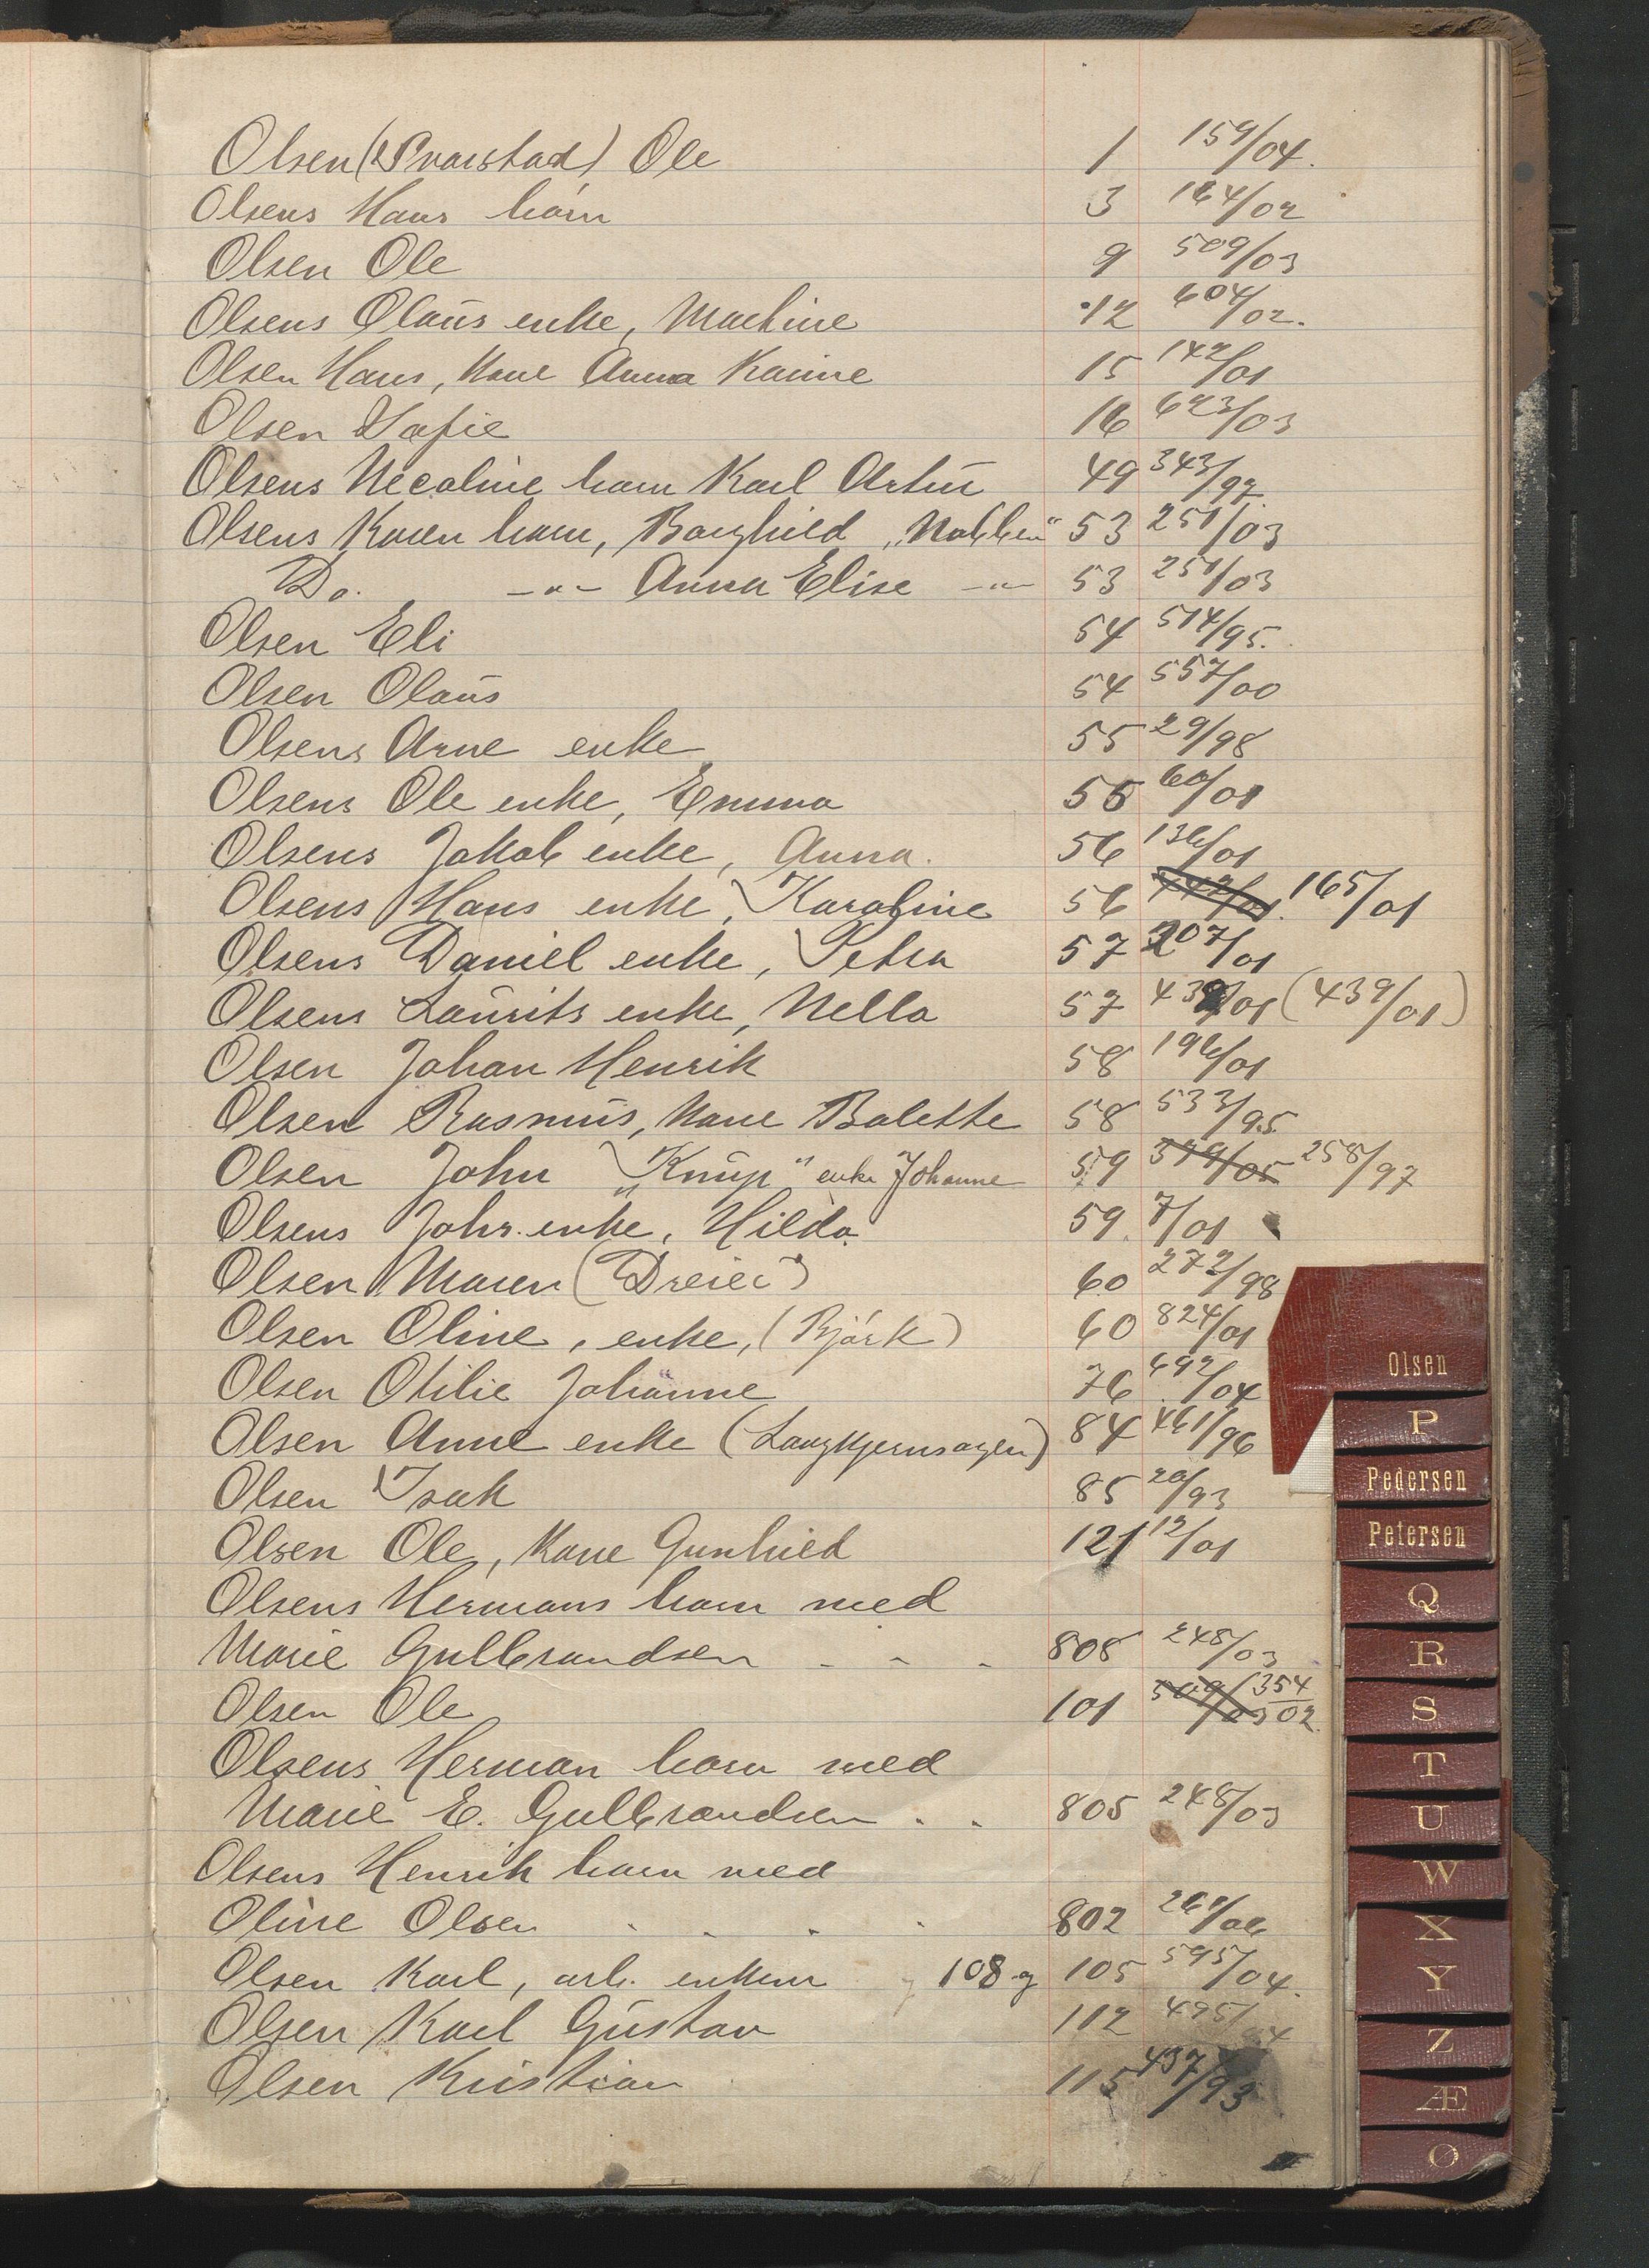 Olsen (Svarstad) Ole 1 159/04.
Olsens Hans barn 3 164/02
Olsen Ole 9 509/03
Olsens Olaus enke, Mathine 12 604/02.
Olsen Hans, kone Anna Karine 15 142/01
Olsen Sofie 16 623/03
Olsens Necoline barn Karl Artur 49 343/97
Olsens Karen barn, Borghild „Nabben“ 53 251/03
Do. -"- Anna Elise -"- 53 251/03
Olsen Eli 54 514/95.
Olsen Olaus 54 557/00
Olsens Arne enke 55 29/98
Olsens Ole enke, Emma 56 60/01
Olsens Jakob enke, Anna. 56 136/01
Olsens Hans enke, Karoline 56 165/01
Olsens Daniel enke, Petra 57 207/01
Olsens Laurits enke, Nella 57 439/01 (439/01)
Olsen Johan Henrik 58 196/01
Olsen Rasmus, kone Bolette 58 533/95
Olsen John „Knup“ enke Johanne 59 379/05 258/97
Olsens Johs. enke, Hilda 59 7/01
Olsen Maren (Dreier) 60 272/98
Olsen Oline, enke, (Bjørk) 60 824/01
Olsen Otilie Johanne 76 692/04
Olsen Anne enke (Langkjernsagen) 84 461/96
Olsen Isak 85 20/93
Olsen Ole, kone Gunhild 121 12/01
Olsens Hermans barn med
Marie Gulbrandsen - - - 808 248/03
Olsen Ole 101 509/03 354/02
Olsens Herman barn med
Marie E. Gulbrandsen . . 805 248/03
Olsens Henrik barn med
Oline Olsen . . . . 802
Olsen Karl, arb. enkem 108 g 105 595/04.
Olsen Karl Gustav 112 495/04
Olsen Kristian 115 437/93
Olsen
P
Pedersen
Petersen
Q
R
S
T
U
W
X
Y
Z
Æ
Ø